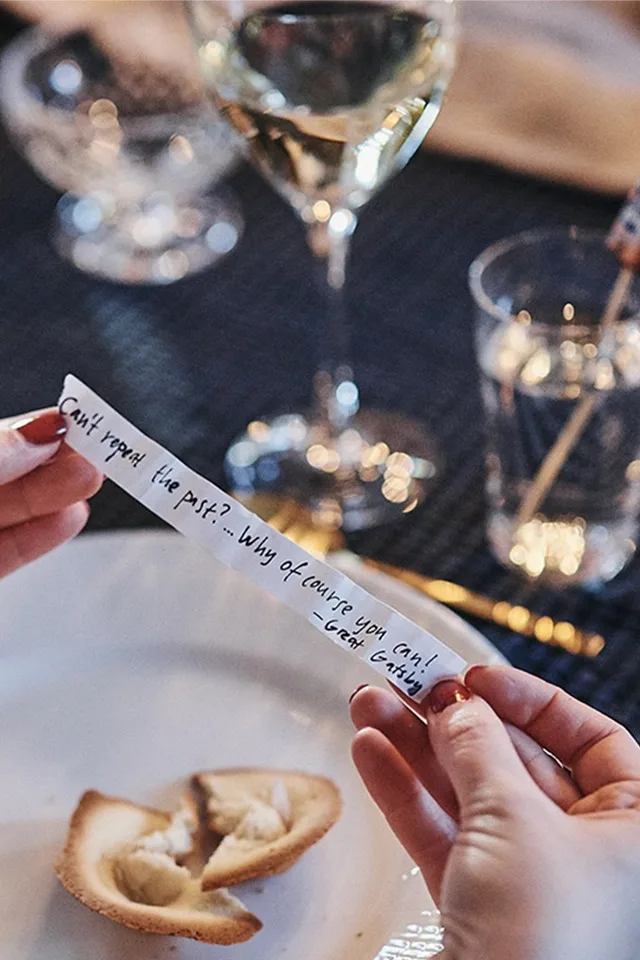 Can't repeat the past?... Why of course you can!
-Great Gatsby